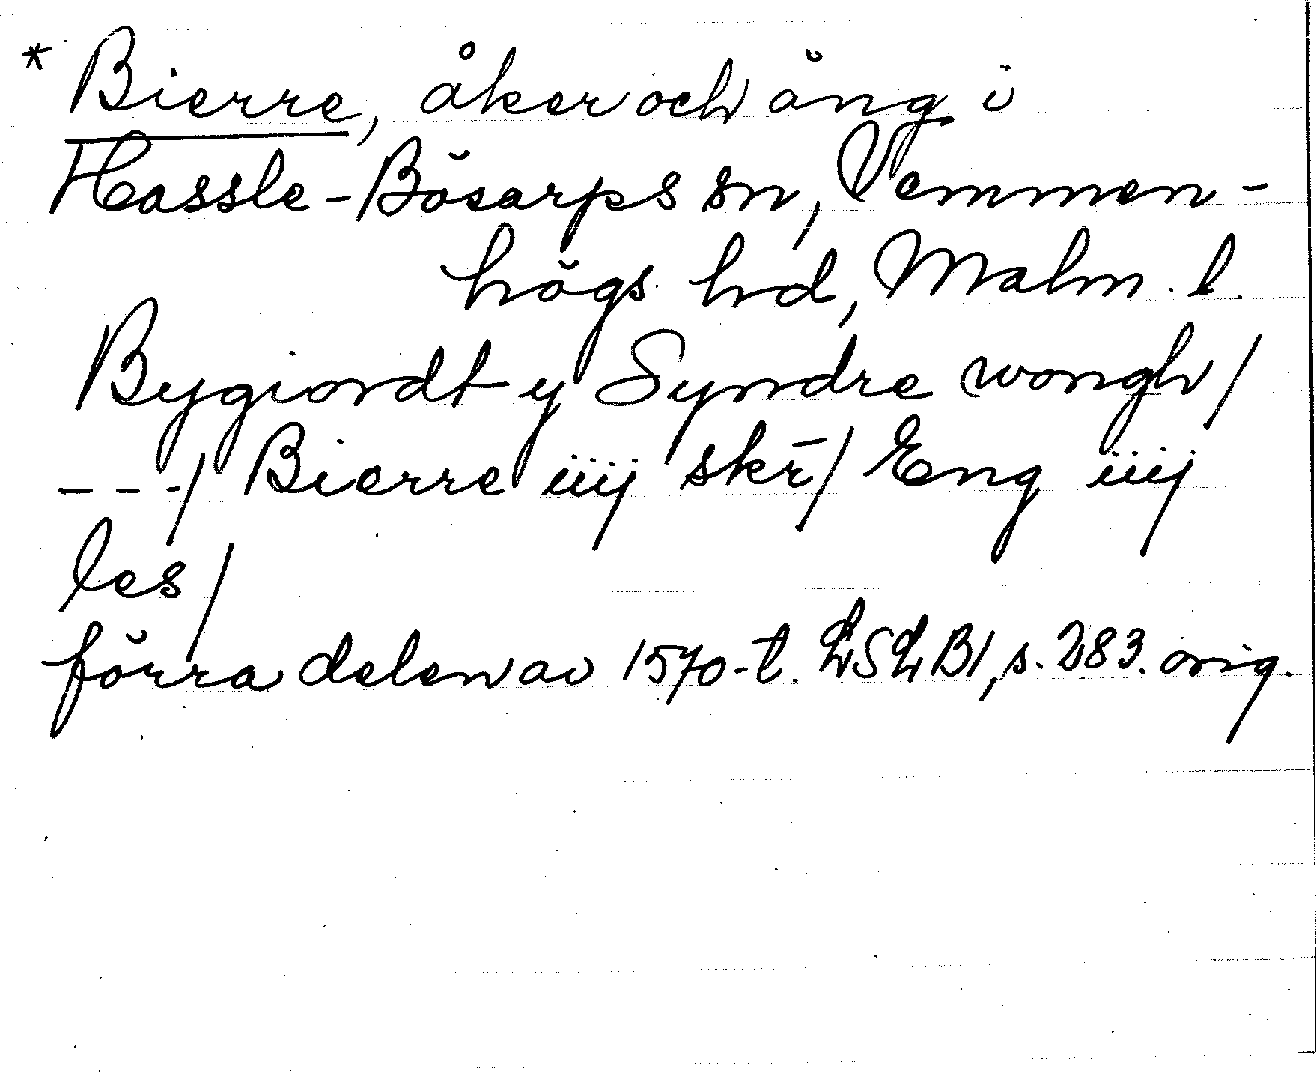 * Bierre, åker och äng i
Hassle-Bösarps sn, Vemmen-
högs hd, Malm. l.
Bygiordt y Syndre wongh/
---/ Bierre iiij skr̄/ Eng iiij
les/
förra delen av 1570-t. LSLB1, s. 283. orig.